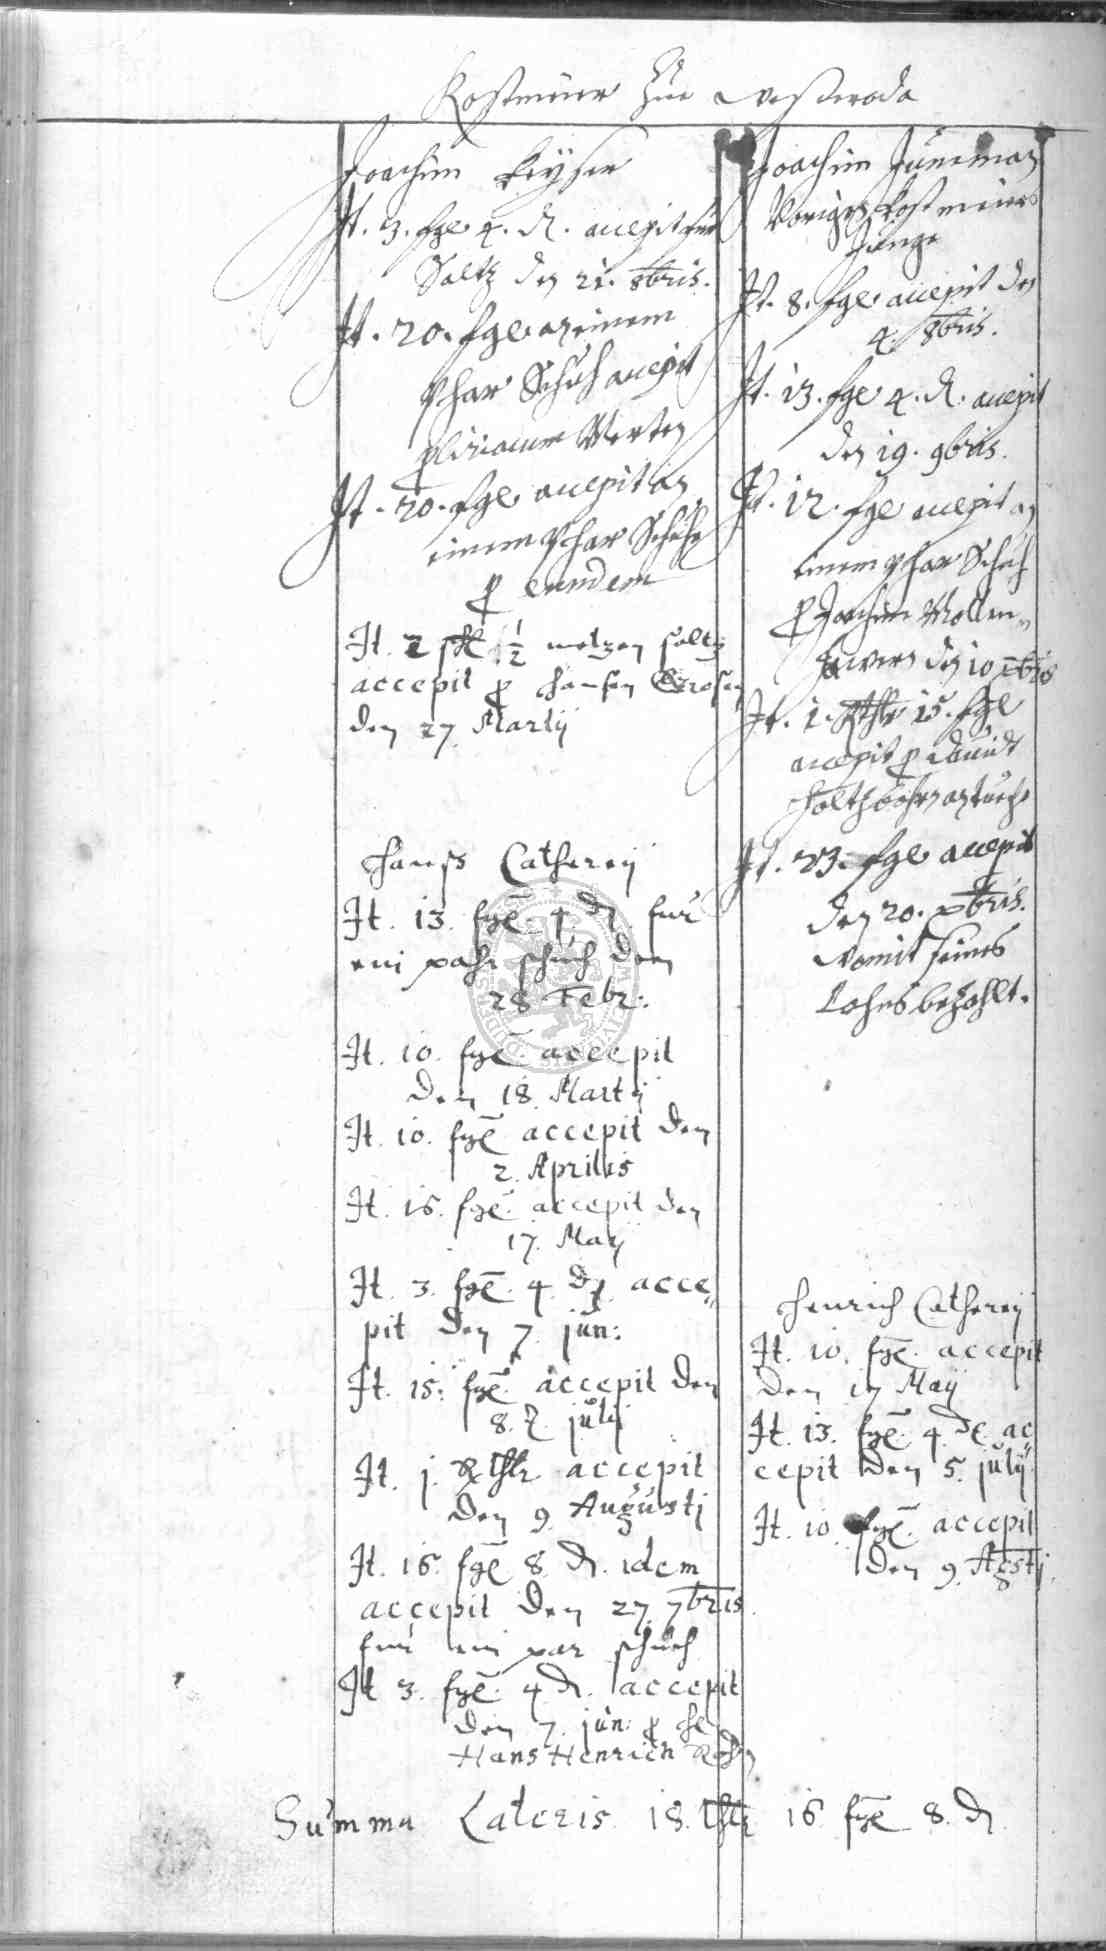 Kostmeier Zue Westeroda
Joachim Keÿser
It. 3. fgl 4. d. accepit für
Saltz den 21. 8bris.
It. 20. fgl an einem
phar Schuh accepit
p Merten
It. 20. fgl accepit an
einem phar Schuhe
p eundem
It. 2 ½ metzen saltz
accepit p Hansen Grosen
den 27 Martij
Hanss Catherey
It. 13. fgl. 4 d. fur
ein pahr schuh den
28 Febr:
It. 10. fgl. accepit
den 18. Martij
It. 10. fgl. accepit den
2. Aprilis
It. 16. fgl. accepit den
17. Maÿ
It. 3. fgl. 4. d. acce„
pit den 7. jun:
It. 15. fgl. accepit den
8. julij
It. j. Rthlr accepit
den 9. Augustj
It. 16. fgl 8. d. idem
accepit den 27. 7bris
fur ein par schuh
It 3. fgl. 4 d. accepit
den 7. jun: p
Hans Henrich
Joachim Juneman
Voriges Kostmeiers
Junge
It. 8. fgl accepit den
4. 8bris.
It. 13. fgl 4. d. accepit
den 19. 9bris.
It. 12. fgl accepit an
einem phar Schuh
p Joachim Mollen„
den 10 xbris
It. 1. Rthlr 15. fgl
accepit p Dauidt

It. 23. fgl accepit
den 20. xbris.
womit seines
Lohns bezahlt.
Henrich Catherey
It. 10. fgl. accepit
den 17 Maÿ
It. 13. fgl. 4. d. ac
cepit den 5. julÿ
It. 10. fgl. accepit
den 9. Agstj.
Summa Lateris 18. thlr 16 fgl 8. d